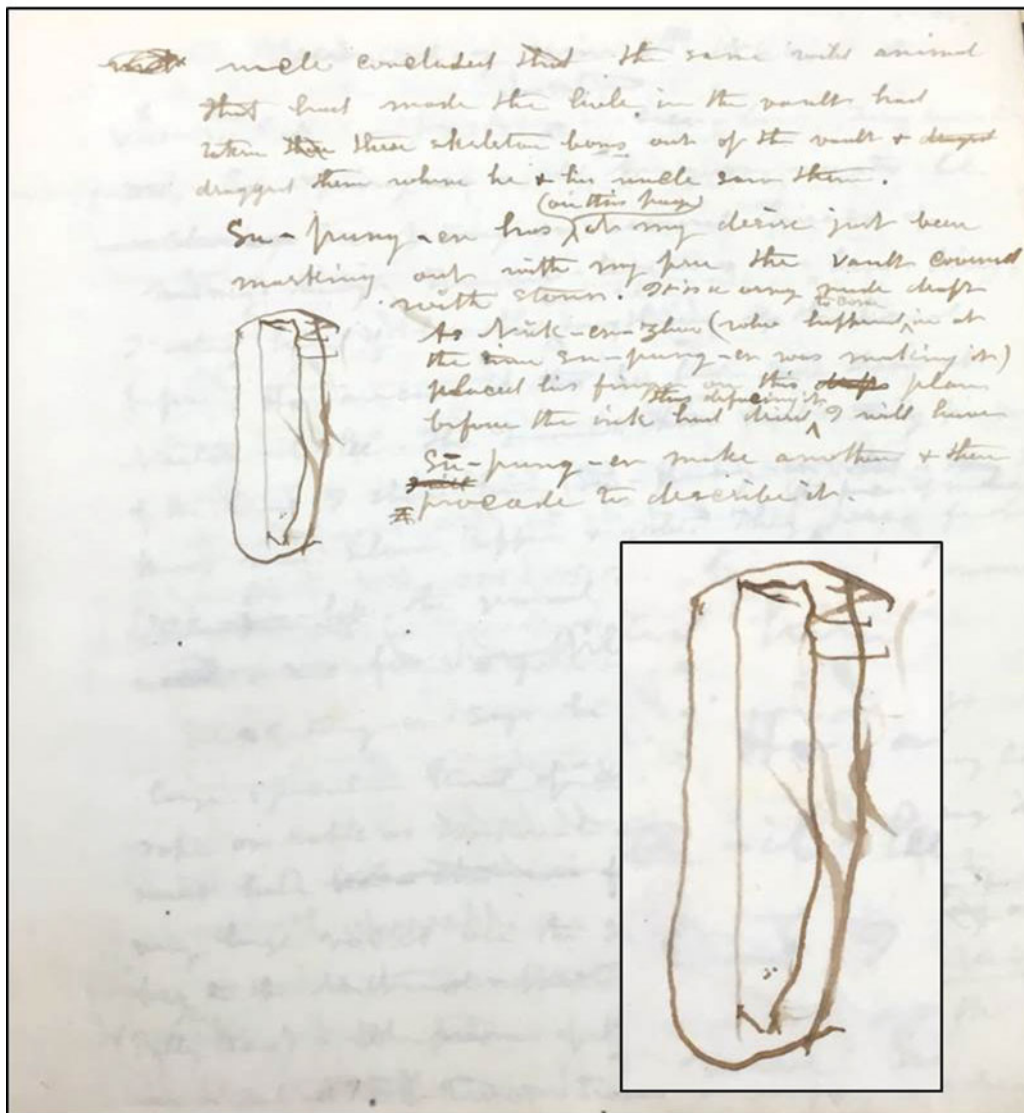 uncle concluded that the same wild animal
that had made the hole in the vault had
taken these skeleton bones out of the vault & draged
dragged them where he & his uncle saw them.
(on this page)
Su-pung-er has at my desire just been
marking out with my pen the vault covered
with stones. It is a very rude draft
to come
As Nuk-er-zhoo (who happened in at
the time Su-pung-er was making it)
placed his finger on this draft plan
thus defacing it
before the ink had dried I will have
Su-pung-er make another & then
procede to describe it.